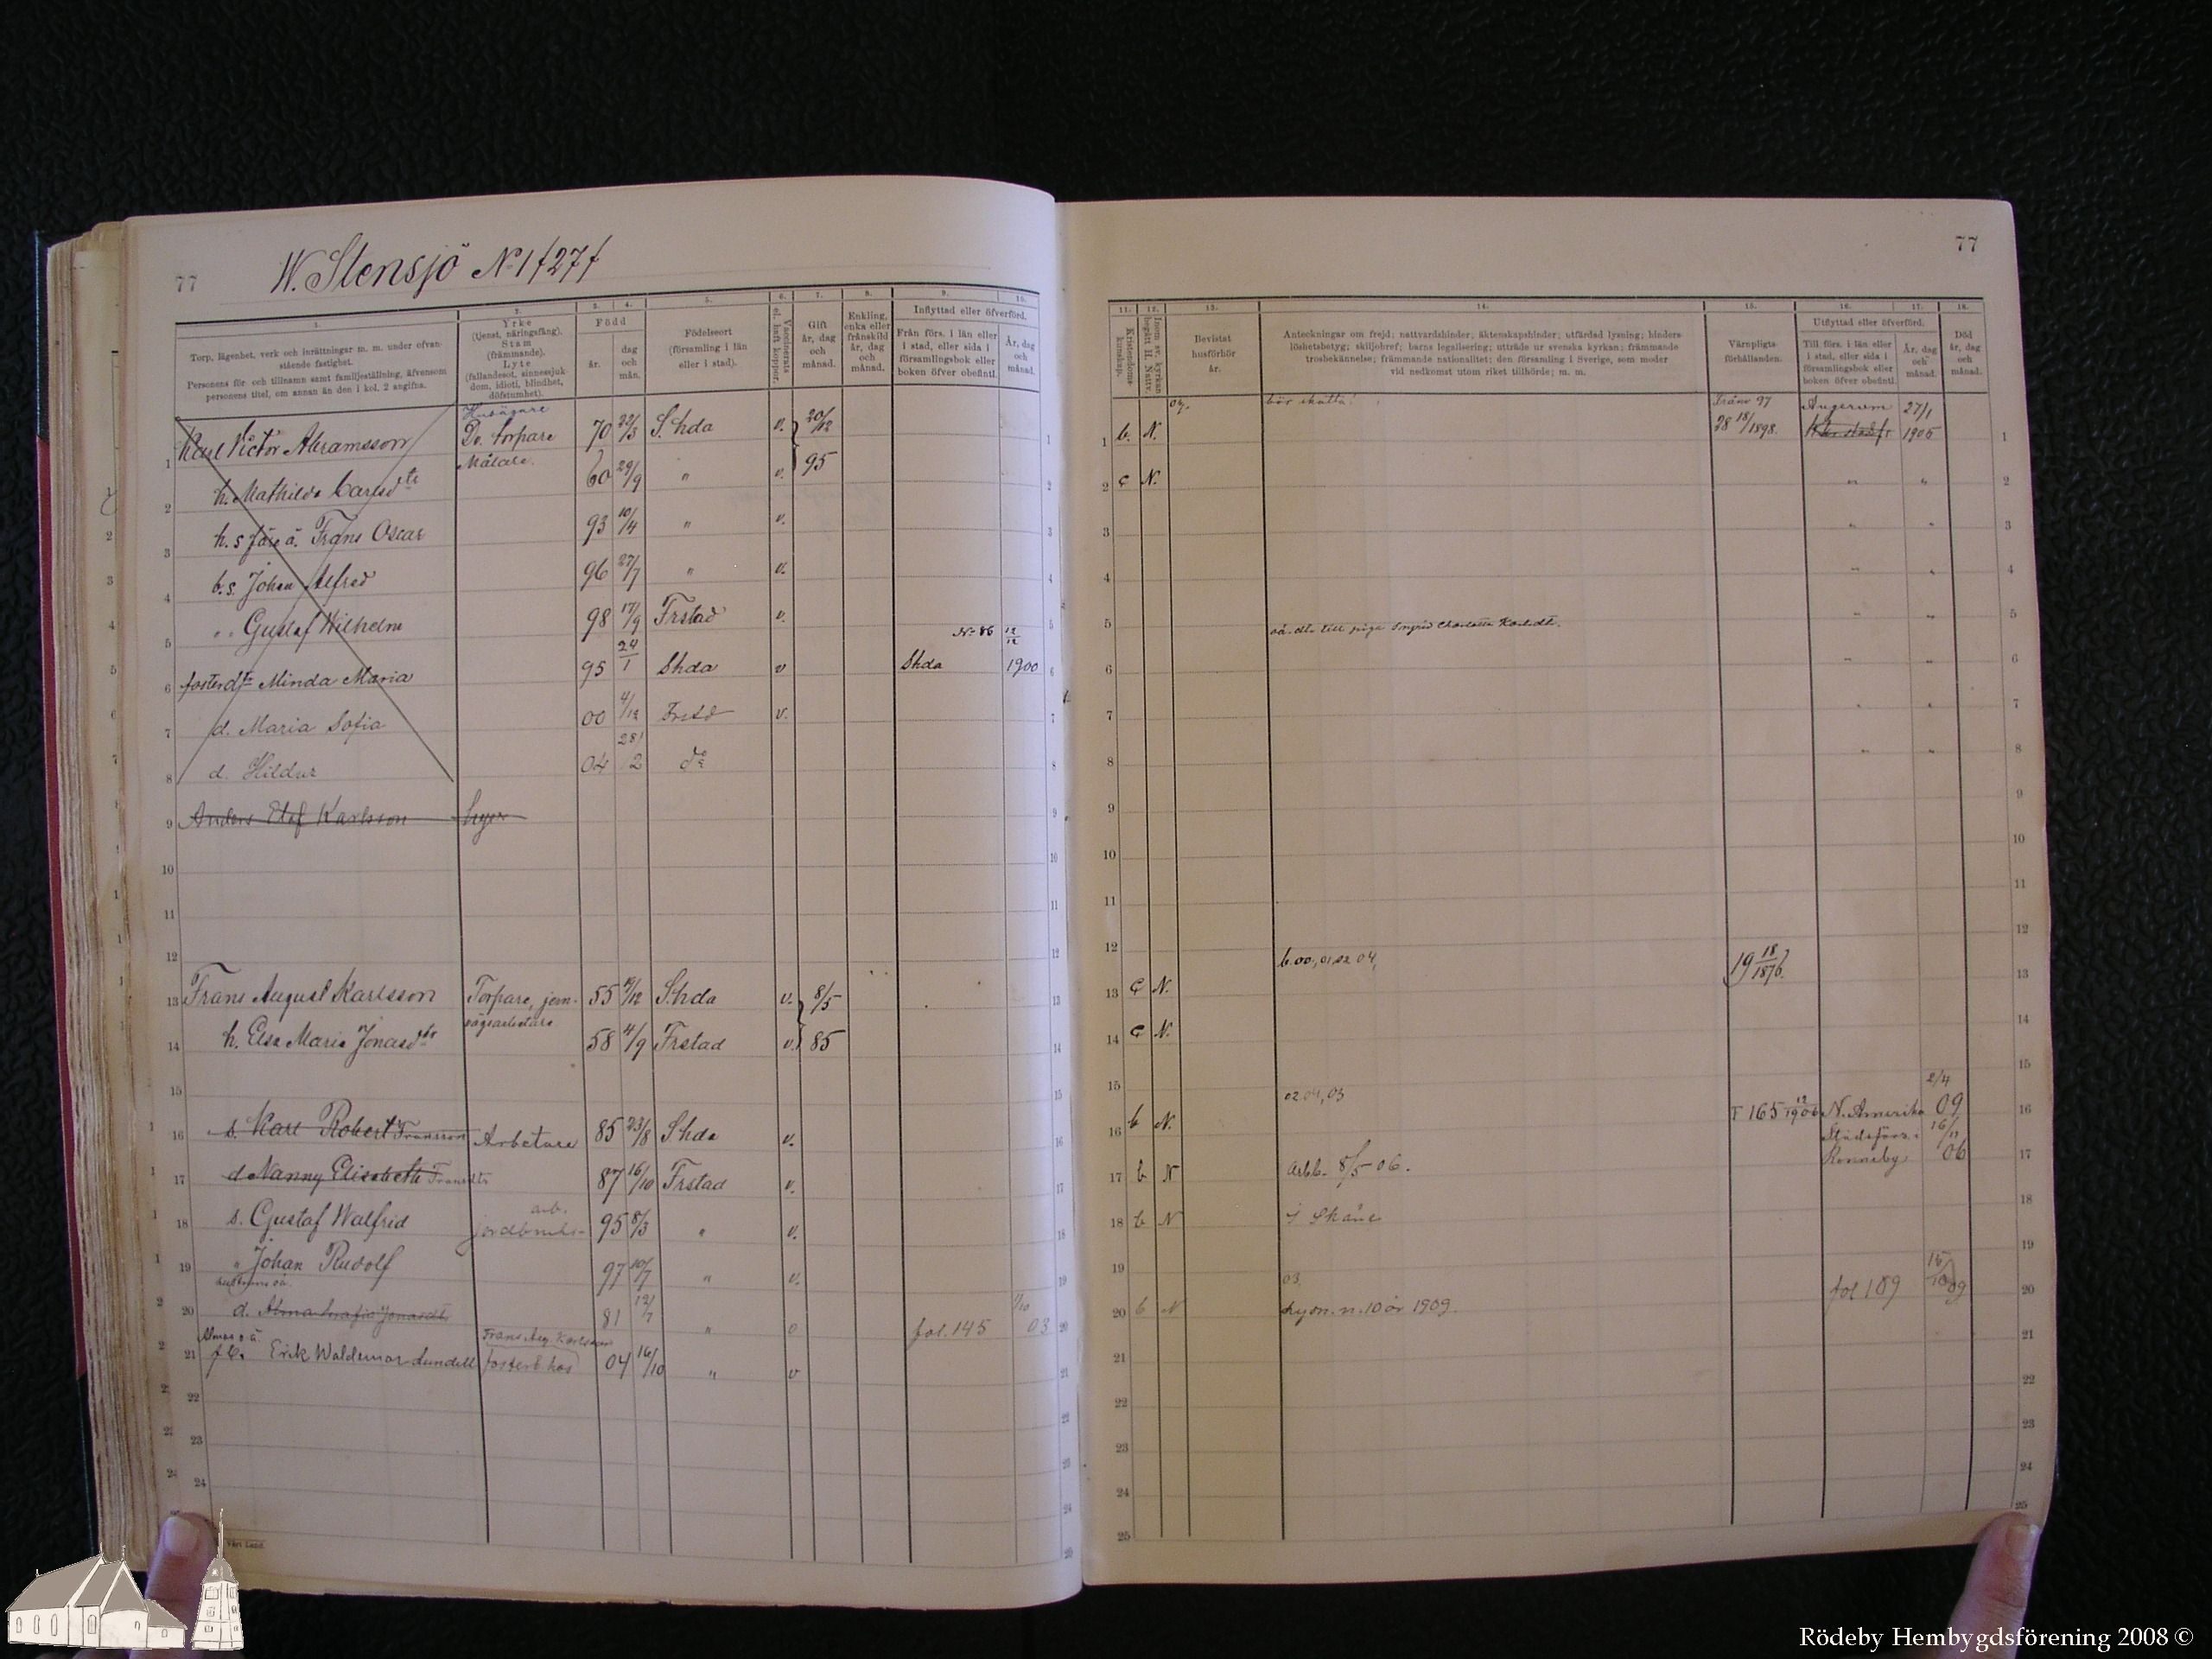 77
W. Stensjö No 1f27f
1.
2.
3.
4.
5.
6.
7.
8.
9.
10.
Torp, lägenhet, verk och inrättningar m. m. under ofvanstående fastighet.
Personens för- och tillnamn samt familjeställning, äfvensom personens titel, om annan än den i kol. 2 angifna.
Yrke
(tjenst, näringsfång).
Stam
(främmande).
Lyte
(fallandesot, sinnessjukdom, idioti, blindhet, döfstumhet).
Född
år.
dag och mån.
Födelseort
(församling i län eller i stad).
Vaccinerats el. haft koppor.
Gift år, dag och månad.
Enkling, enka eller frånskild år, dag och månad.
Inflyttad eller öfverförd.
Från förs. i län eller i stad, eller sida i församlingsbok eller boken öfver obefintl.
År, dag och månad.
Husägare
1 Karl Victor Abramsson Do. torpare 70 22/3 S.hda v. 20/12
Målare.
2 h. Mathilda Carlsdtr 60 29/9 " v. 95
3 h. s före ä. Frans Oscar 93 10/4 " v.
4 b. s. Johan Alfred 96 27/7 " v.
5 " " Gustaf Wilhelm 98 17/9 Frstad v.
6 fosterdtr Minda Maria 95 24/1 Shda v No 86 Shda 12/12 1900
7 d. Maria Sofia 00 4/12 Frstd v.
8 d. Hildur 04 28/2 do
9 Anders Elof Karlsson
10
11
12
13 Frans August Karlsson Torpare, jernvägsarbetare 55 /12 S.hda v. 8/5
14 h. Elsa Maria Jonasdtr 58 4/9 Frstad v. 85
15
16 s. Karl Robert Fransson Arbetare 85 23/8 Shda v.
17 d Nanny Elisabeth Fransdtr 87 16/10 Frstad v.
18 s. Gustaf Walfrid jordbruks- arb. 95 8/3 " v.
19 " Johan Rudolf 97 10/7 " v.
hustruns oä.
20 d. Alma Jonasdtr 81 12/7 " fol. 145 1/10 03
Almas o ä
21 f b. Erik Waldemar Lundell fosterb. hos Frans Aug. Karlsson 04 16/10 " v
22
23
24
Vårt Land.
77
11.
12.
13.
14.
15.
16.
17.
18.
Kristendomskunskap.
Inom sv. kyrkan begått H. Nattv.
Bevistat husförhör år.
Anteckningar om frejd; nattvardshinder; äktenskapshinder; utfärdad lysning; hinderslöshetsbetyg; skiljobref; barns legalisering; utträde ur svenska kyrkan; främmande trosbekännelse; främmande nationalitet; den församling i Sverige, som moder vid nedkomst utom riket tillhörde; m. m.
Värnpligtsförhållanden.
Utflyttad eller öfverförd.
Till förs. i län eller i stad, eller sida i församlingsbok eller boken öfver obefintl.
År, dag och månad.
Död år, dag och månad.
1 b. N. 04. bör skatta! 28 18/1898. Augerum 27/1 1905 1
2 c N. " " 2
3 " " 3
4 " " 4
5 oä. dtr till piga Ingrid Charlotta Karlsdt. " " 5
6 " " 6
7 " " 7
8 " " 8
9
10
11
12
b. 00, 01, 02 04,
13 c N. 19 18/1876.
14 c N.
15
16 b N. 02 04, 03 F 165 12/1906 N. Amerika 2/4 09
17 b N Arbb. 8/5 06. Stadsförs. i Ronneby 16/11 06
18 b N i Skåne
19 03.
20 b N Lysn. n. 10 år 1909. fol 189 15/10 09
21
22
23
24
25
Rödeby Hembygdsförening 2008 ©